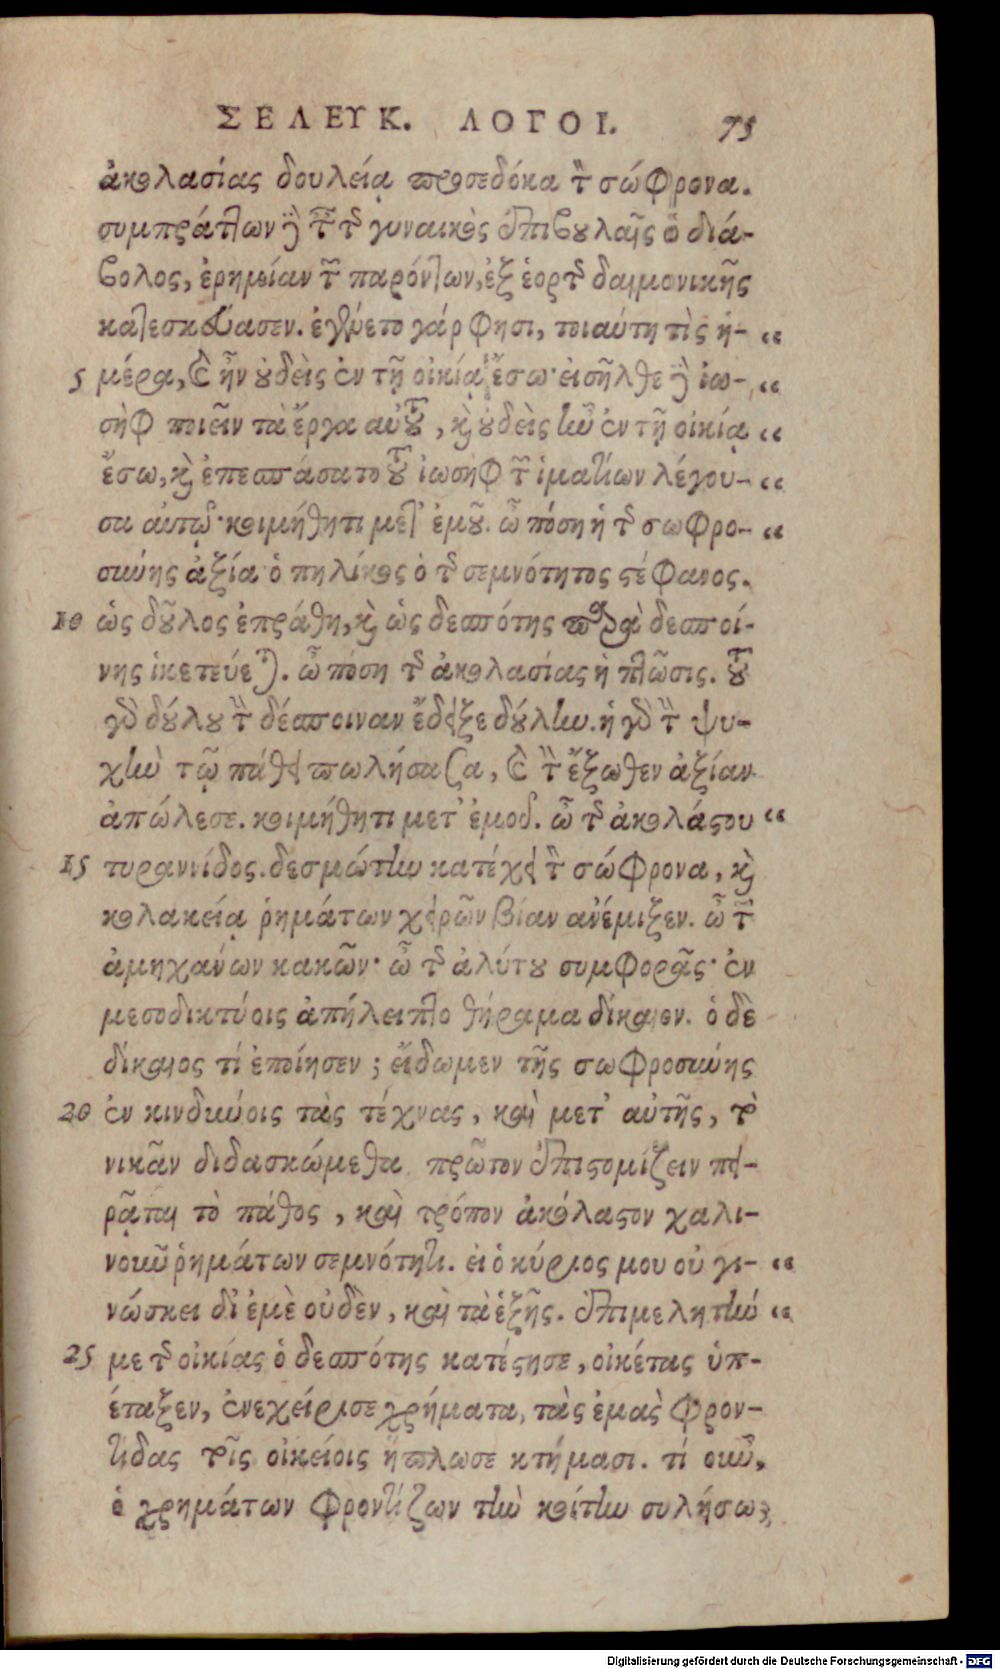 ΣΕΛΕΥΚ. ΛΟΓΟΙ. 75
ἀκολασίας δουλείᾳ προσεδόκα τὸν σώφρονα.
συμπράττων δὲ ταῖς τῆς γυναικὸς ἐπιβουλαῖς ὁ διά-
βολος, ἐρημείαν τῶν παρόντων, ἐξ ἑορτῆς δαιμονικῆς
κατεσκεύασεν. ἐγένετο γάρ φησι, τοιαύτη τὶς ἡ- “
5 μέρα, καὶ ἦν οὐδεὶς ἐν τῇ οἰκίᾳ ἔσω· εἰσῆλθε δὲ ἰω- “
σὴφ ποιεῖν τὰ ἔργα αὐτοῦ, καὶ οὐδεὶς ἦν ἐν τῇ οἰκίᾳ “
ἔσω, καὶ ἐπεσπάσατο τοῦ ἰωσὴφ τῶν ἱματίων λέγου- “
σα αὐτῷ· κοιμήθητι μετ’ ἐμοῦ. ὢ πόση ἡ τῆς σωφρο- “
σύνης ἀξία· ὁ πηλίκος ὁ τῆς σεμνότητος στέφανος.
10 ὡς δοῦλος ἐπράθη, καὶ ὡς δεσπότης παρὰ δεσποί-
νης ἱκετεύεται. ὢ πόση τῆς ἀκολασίας ἡ πτῶσις. τοῦ
γὰρ δούλου τὴν δέσποιναν ἔδειξε δούλην. ἡ γὰρ τὴν ψυ-
χὴν τῷ πάθει πωλήσασα, καὶ τὴν ἔξωθεν ἀξίαν
ἀπώλεσε. κοιμήθητι μετ’ ἐμοῦ. ὢ τῆς ἀκολάστου “
15 τυραννίδος. δεσμώτην κατέχει τὸν σώφρονα, καὶ
κολακείᾳ ῥημάτων χειρῶν βίαν ἀνέμιξεν. ὢ τῶν
ἀμηχάνων κακῶν· ὢ τῆς ἀλύτου συμφορᾶς· ἐν
μεσοδικτύοις ἀπήλειπτο θήραμα δίκαιον. ὁ δὲ
δίκαιος τί ἐποίησεν; εἴδωμεν τῆς σωφροσύνης
20 ἐν κινδύνοις τὰς τέχνας, καὶ μετ’ αὐτῆς, τὸ
νικᾶν διδασκώμεθα. πρῶτον ἐπιστομίζειν πει-
ρᾶται τὸ πάθος, καὶ τρόπον ἀκόλαστον χαλι-
νοῦν ῥημάτων σεμνότητι. εἰ ὁ κύριος μου οὐ γι- “
νώσκει δι’ ἐμὲ οὐδὲν, καὶ τὰ ἑξῆς. ἐπιμελητήν “
25 με τῆς οἰκίας ὁ δεσπότης κατέστησε, οἰκέτας ὑπ-
έταξεν, ἐνεχείρισε χρήματα, τὰς ἐμὰς φρον-
τίδας τοῖς οἰκείοις ἥπλωσε κτήμασι. τί οὖν,
ὁ χρημάτων φροντίζων τὴν κοίτην συλήσω;
Digitalisierung gefördert durch die Deutsche Forschungsgemeinschaft - DFG